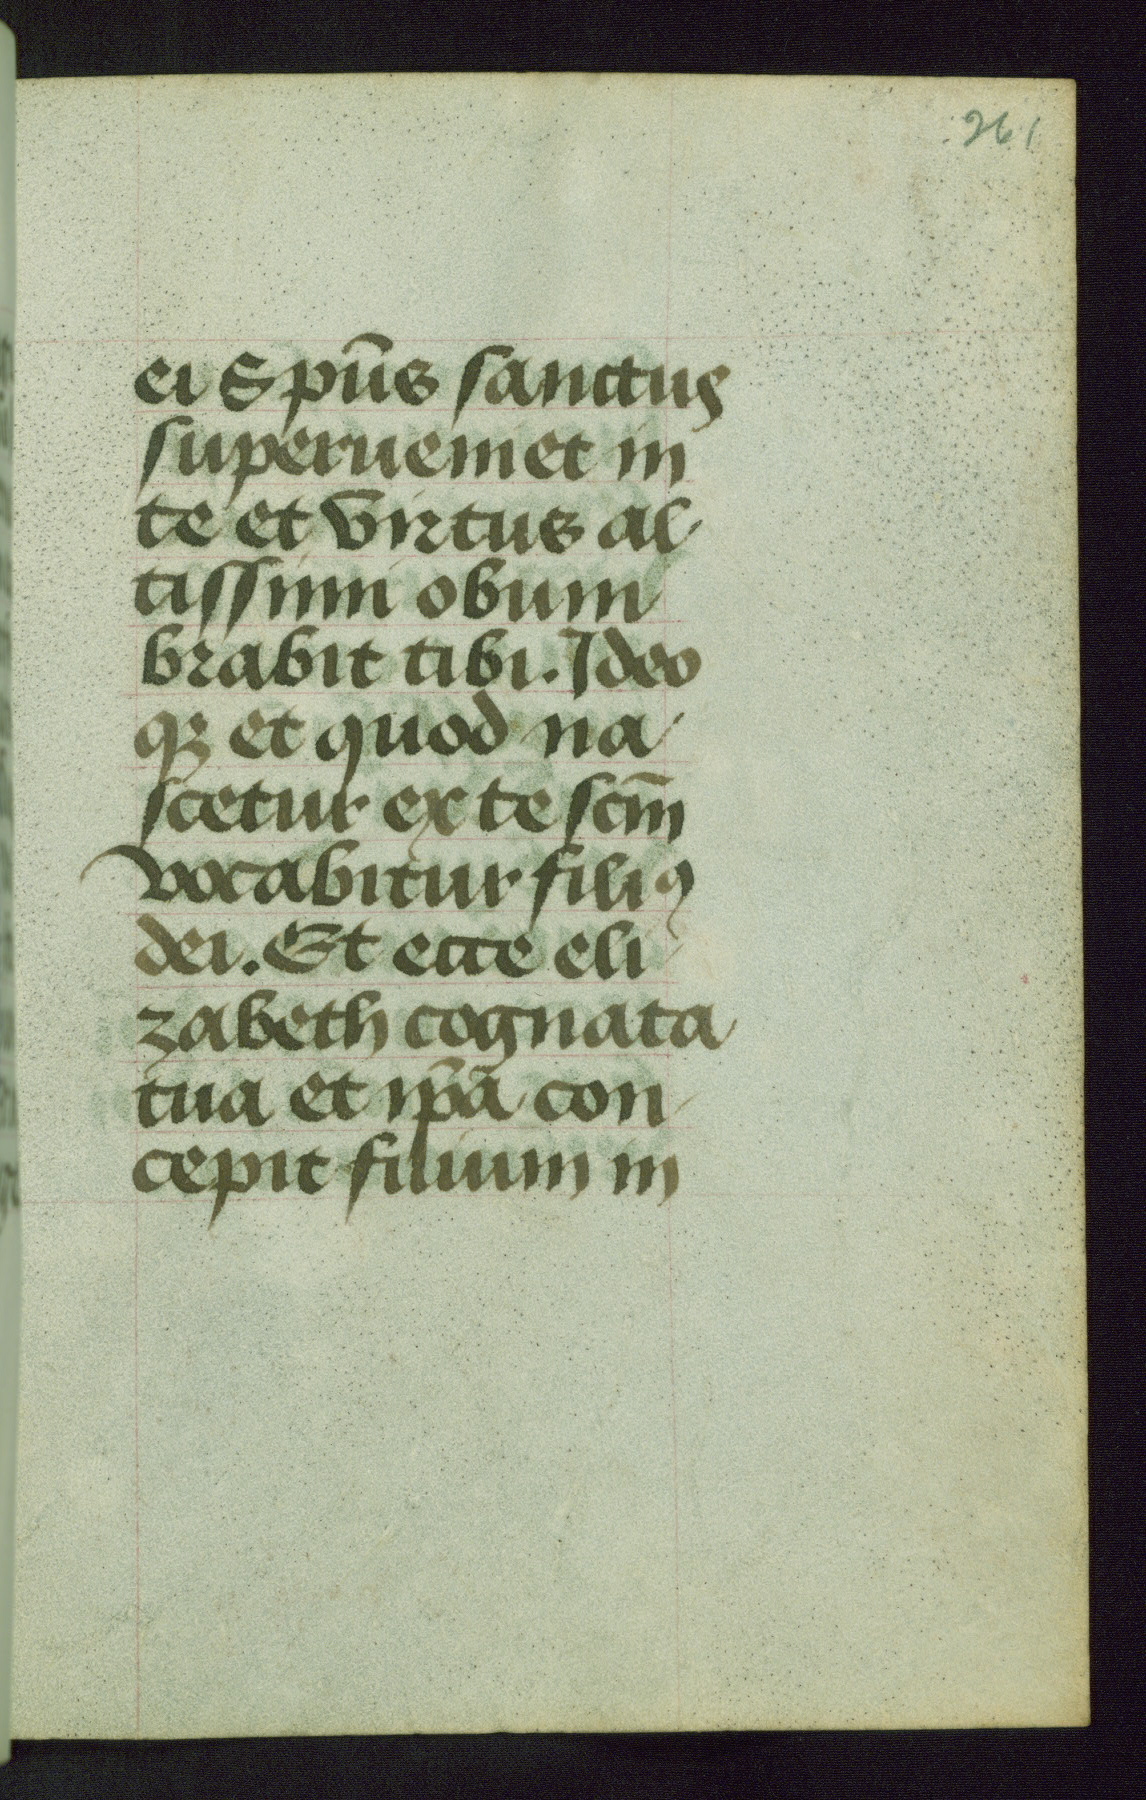 261
ei Spūs sanctus
superueniet in
te et virtus al
tissimi obum
brabit tibi. Ideo
qꝫ et quod na
scetur ex te scm̄
vocabitur filiꝰ
dei. Et ecce eli
zabeth cognata
tua et ip̄a con
cepit filium in